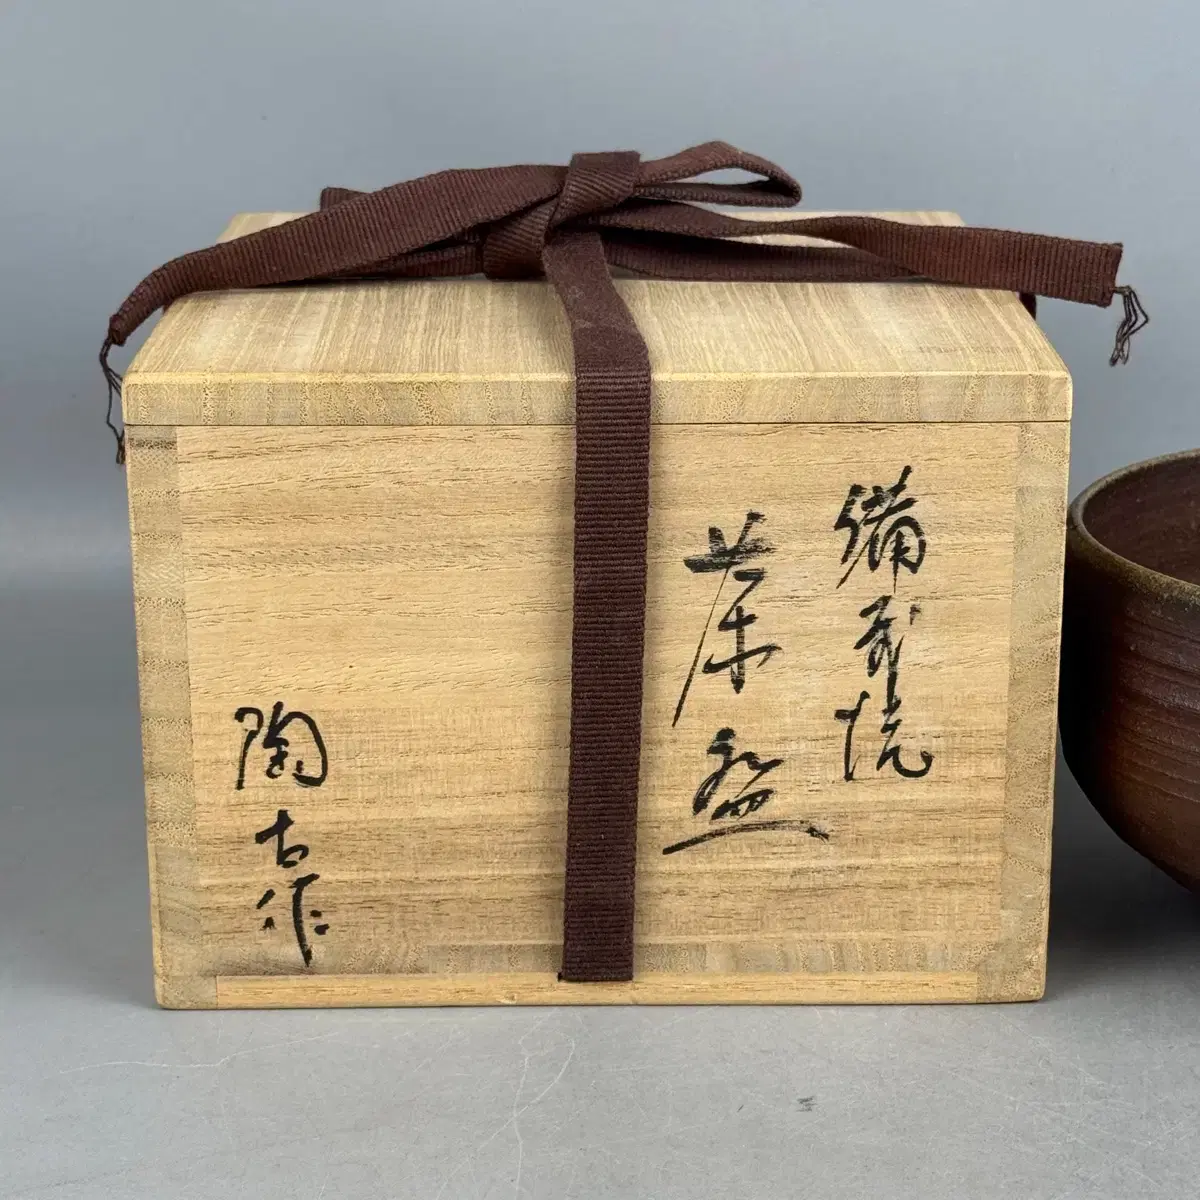 備前焼
茶盌
陶古作